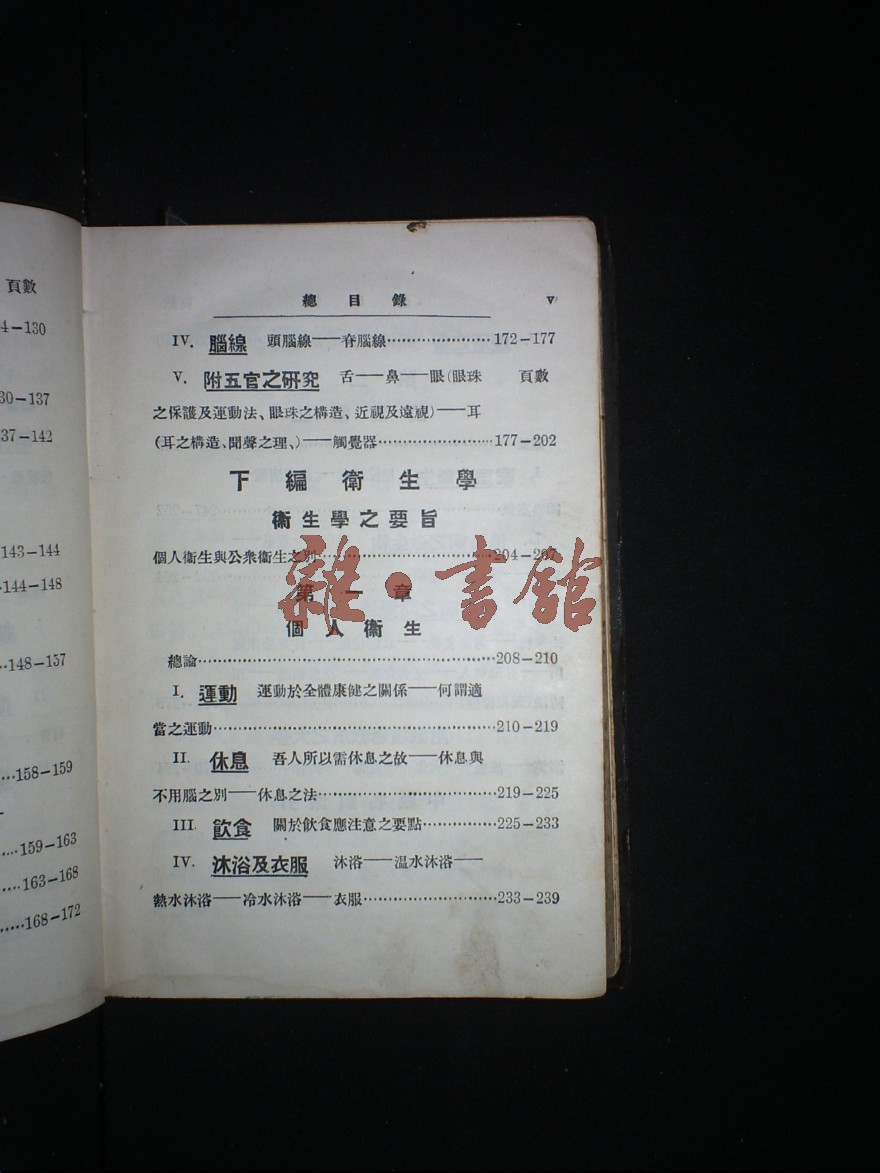 頁數
4—130
30—137
37—142
143—144
144—148
148—157
158—159
159—163
163—168
168—172
總目錄 v
IV. 腦線 頭腦線——脊腦線……172—177
V. 附五官之研究 舌——鼻——眼(眼珠 頁數
之保護及運動法、眼珠之構造、近視及遠視)——耳
(耳之構造、聞聲之理、)——觸覺器……177—202
下編衛生學
衛生學之要旨
個人衞生與公衆衞生之別……204—207
第一章
個人衞生
總論……208—210
I. 運動 運動於全體康健之關係——何謂適
當之運動……210—219
II. 休息 吾人所以需休息之故——休息與
不用腦之別——休息之法……219—225
III. 飲食 關於飲食應注意之要點……225—233
IV. 沐浴及衣服 沐浴——温水沐浴——
熱水沐浴——冷水沐浴——衣服……233—239
雜·書館